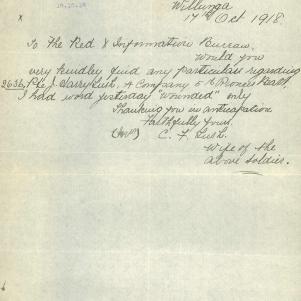 19.10.18
x
Willunga
17th Oct 1918
To The Red X Information Bureau.
Would you
very kindly find any particulars regarding
2636, Pte J. Harry Lush, A Company 5th Pioneer Batt.
I had word yesterday "wounded" only
Thanking you in anticipation
Faithfully yours.
(Mrs) C. F. Lush.
Wife of the
above soldier.